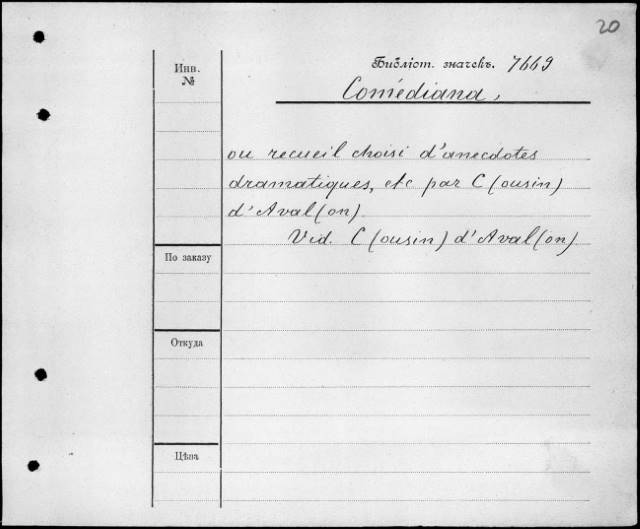 20
Инв.
№
Библіот. значекъ. 7669
Comédiana,
ou recueil choisi d'anecdotes
dramatiques, etc par C (ousin)
d'Aval(on)
Vid. C (ousin) d'Aval(on)
По заказу
Откуда
Цѣна